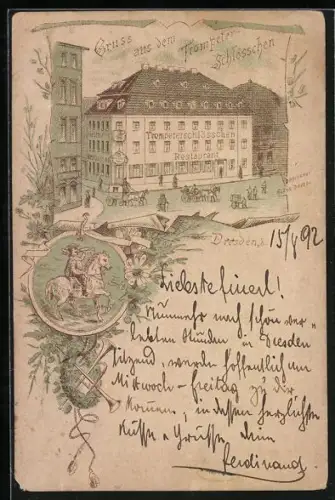 Gruss aus dem Trompeter-
Schlösschen
Trompeterschlösschen
Restaurant
Dresden, d. 15/8 92
Liebste
Nunmehr noch schön ver-
lebten Stunden in Dresden
sitzend, werde hoffentlich am
Mittwoch - freitag zu dir
kommen, in dessen herzlichste
Küsse u Grüsse dein
Ferdinand